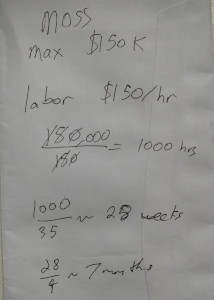 MOSS
max $150K
labor $150/hr
150,000
/150 = 1000 hrs
1000
/35 ~ 28 weeks
28
/4 ~ 7 months